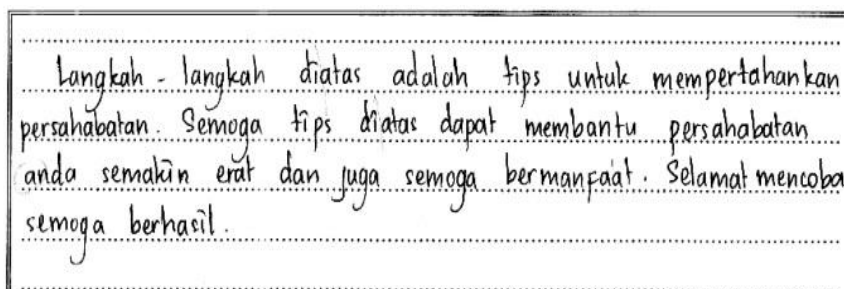 Langkah - langkah diatas adalah tips untuk mempertahankan
persahabatan. Semoga tips diatas dapat membantu persahabatan
anda semakin erat dan juga semoga bermanfaat. Selamat mencoba
semoga berhasil.